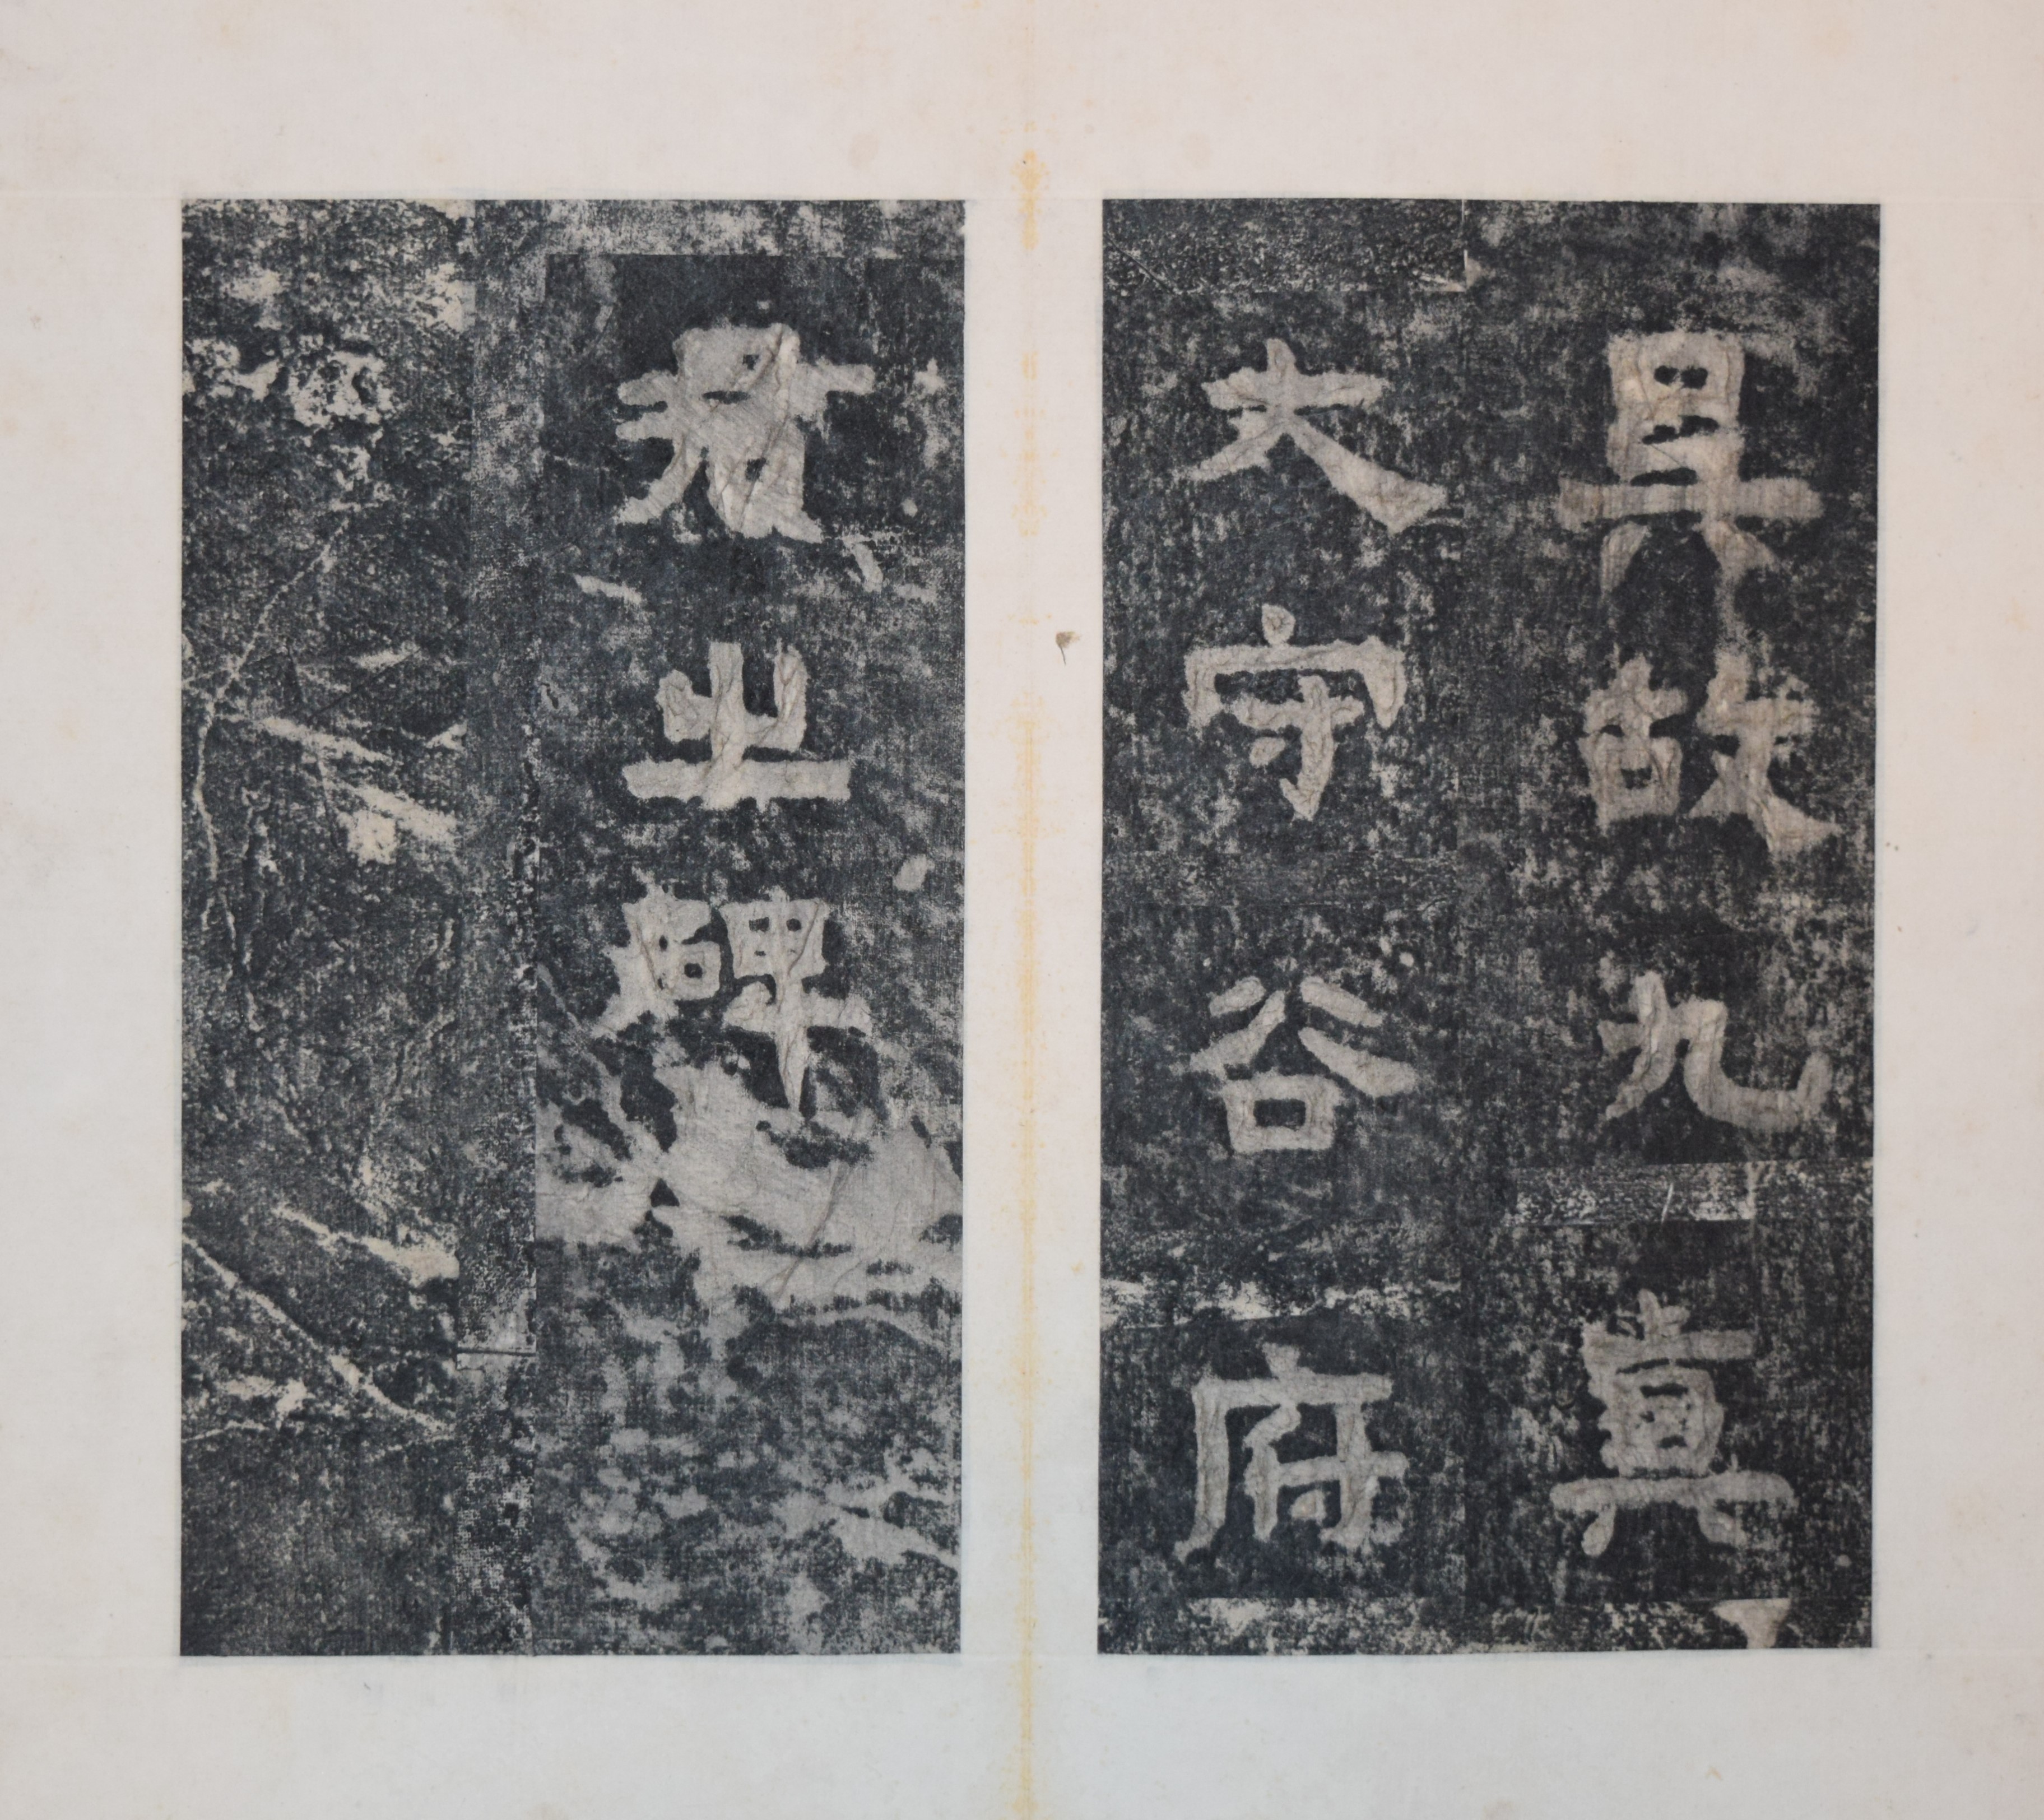 吳故九真
太守谷府
君之碑